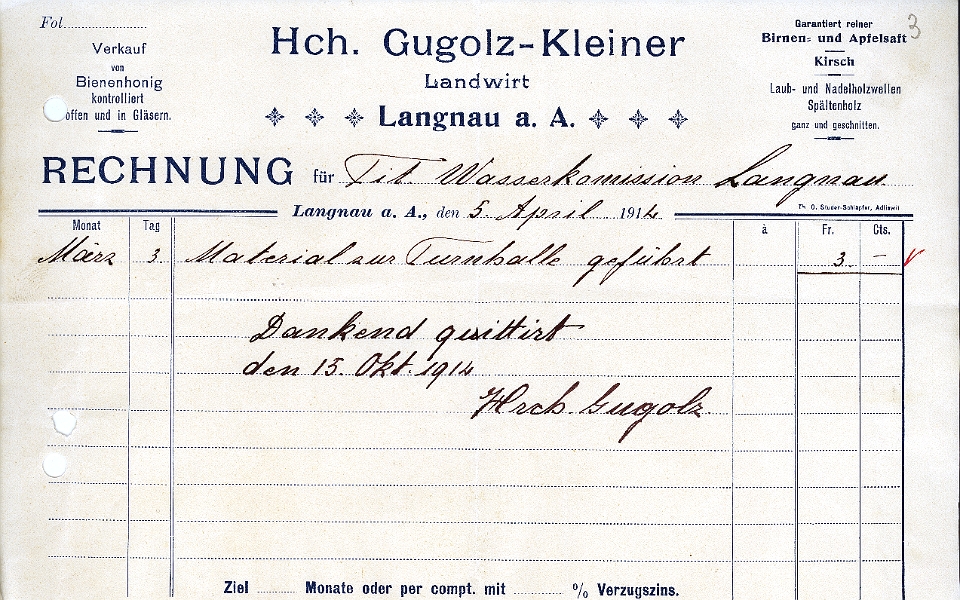 Fol.
3
Verkauf
von
Bienenhonig
kontrolliert
offen und in Gläsern.
Hch. Gugolz-Kleiner
Landwirt
Langnau a. A.
Garantiert reiner
Birnen- und Apfelsaft
Kirsch
Laub- und Nadelholzwellen
Spältenholz
ganz und geschnitten.
RECHNUNG für Tit. Wasserkomission Langnau
Langnau a. A., den 5. April 1914
Th. G. Studer-Schlapfer, Adliswil
Monat Tag à Fr. Cts.
März 3. Material zur Turnhalle geführt 3. –
Dankend quittirt
den 15. Okt. 1914
Hrch. Gugolz
Ziel Monate oder per compt. mit % Verzugszins.